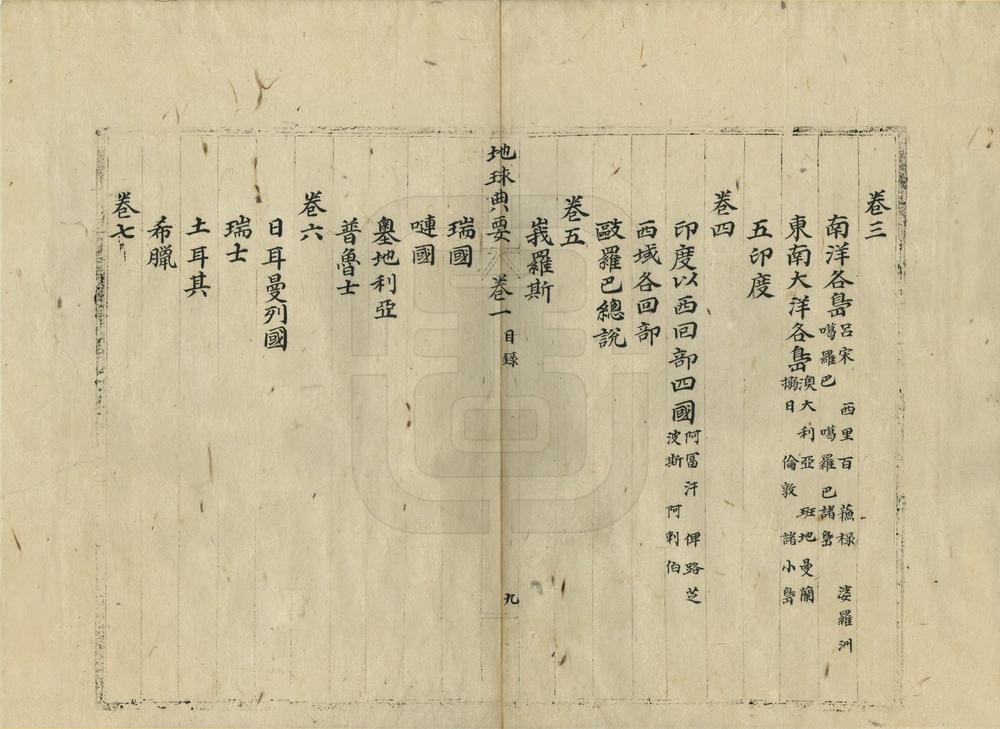 卷三
南洋各島 呂宋 西里百 蘇祿 婆羅洲
噶羅巴 噶羅巴諸島
東南大洋各島 澳大利亞 班地曼蘭
搦日倫敦 諸小島
五印度
卷四
印度以西回部四國 阿富汗 俾路芝
波斯 阿剌伯
西域各回部
卷五
歐羅巴總說
峩羅斯
地球典要 卷一 目錄 九
瑞國
嗹國
奧地利亞
普魯士
卷六
日耳曼列國
瑞士
土耳其
希臘
卷七